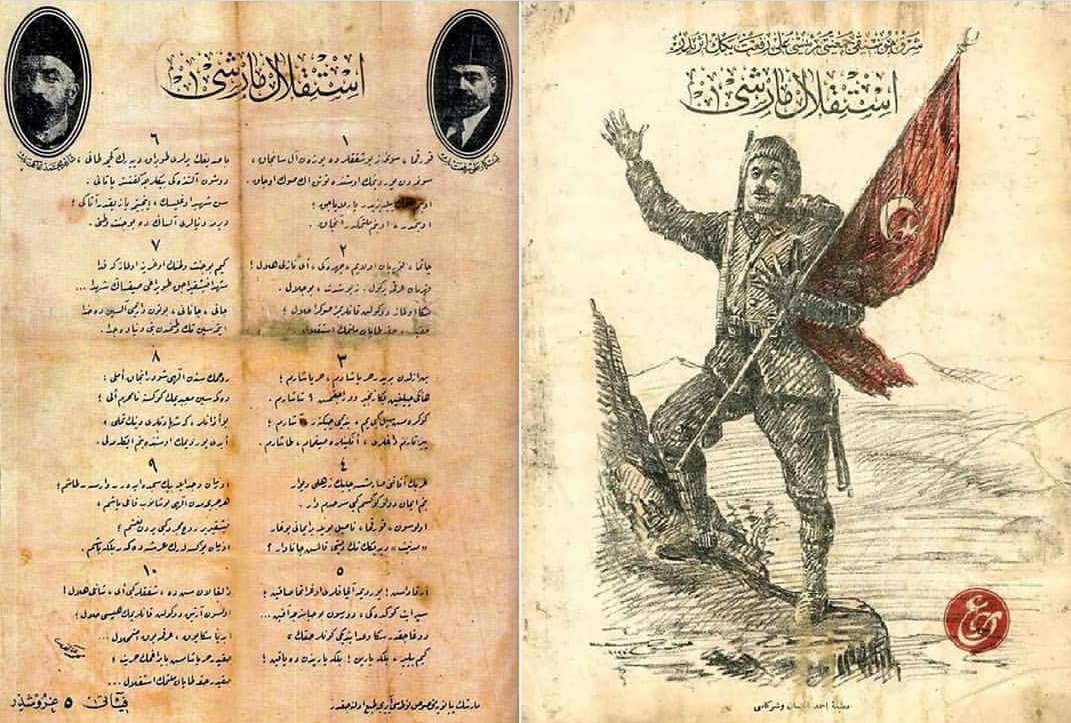 استقلال مارشی
١
قورقما ، سونمز بو شفقلرده یوزن آل سانجاق ،
سونمه‌دن یوردیمك اوستنده توتن اك صوك اوجاق .
او بنم
او بنمدر ، او بنم ملتمكدر آنجاق .
٢
چاتما ، قربان اولایم ، چهره‌كی ، ای نازلی هلال !
قهرمان عرقمه بر كول . نه بو شدت ، بو جلال .
سكا اولماز دوكولن قانلریمز صوكرا حلال !
حقیدر ، حقه طاپان ملتمك استقلال
٣
بن ازلدن بریدر حر یاشادم ، حر یاشارم !
هانكی چیلغین بكا زنجیر ووراجقمش ؟ شاشارم !
كوكره‌مش سیل كبی‌یم ، بندیمی چیكنر ، آشارم !
ییرتارم داغلری ، انكینلره صیغمام ، طاشارم .
٤
غربك آفاقنی صارمشسه چلیك زرهلی دیوار
بنم ایمان دولو كوكسم كبی سرحدم وار .
اولوسون ، قورقما ! ناصل بویله بر ایمانی بوغار
« مدنیت » دیدیكك تك دیشی قالمش جاناوار ؟
٥
آرقاداش ! یوردیمه آلچاقلری اوغراتما صاقین !
سپر ایت كوكده‌كی ، دورسون بو حیاسزجه آقین ...
دوغاجقدر سكا وعد ایتدیكی كونلر حقك ،
كیم بیلیر ، بلكه یارین ! بلكه یاریندن ده یاقین !
٦
باصدیغك یرلری طوپراق دییه‌رك كچمه طانی ،
دوشون آلتنده‌كی بیكلرجه كفنسز یاتانی .
سن شهید اوغلیسك ، اینجیتمه یازیقدر آتاكی !
ویرمه دنیالری آلساك ده بو جنت وطنی .
٧
كیم بو جنت وطنك اوغرینه اولماز كه فدا
شهدا فیشقیراجق طوپراغی صیقساك شهدا ...
جانی ، جانانی ، بوتون واریمی آلسین ده خدا
ایتمه‌سین تك وطنمدن بنی دنیاده جدا .
٨
روحمك سندن الهی شودر آنجاق املی :
دكمه‌سین معبدیمك كوكسنه نامحرم الی !
بو اذانلر ، كه شهادتلری دینك تملی ،
ابدی یوردیمك اوستنده بنم ایكله‌ملی .
٩
او زمان وجد ایله بیك سجده ایدر ــ وارسه ــ طاشم !
هر جریحه‌مدن الهی بوشانوب قانلی یاشم ،
فیشقیریر روح مجرد كبی یردن نعشم !
او زمان یوكسله‌رك عرشه دكر بلكه باشم .
١٠
دالغالان سن ده ، شفقلر كبی ای شانلی هلال !
اولسون آرتیق دوكولن قانلریمك هپسی حلال !
ابدیا سكا یوق ، عرقمه یوق اضمحلال ...
حقیدر حر یاشامش بایراغمك حریت ؛
حقیدر حقه طاپان ملتمك استقلال ...
فیئاتی ٥ غروشدر
استقلال مارشی
مطبعۀ احمد احسان و شركاسی